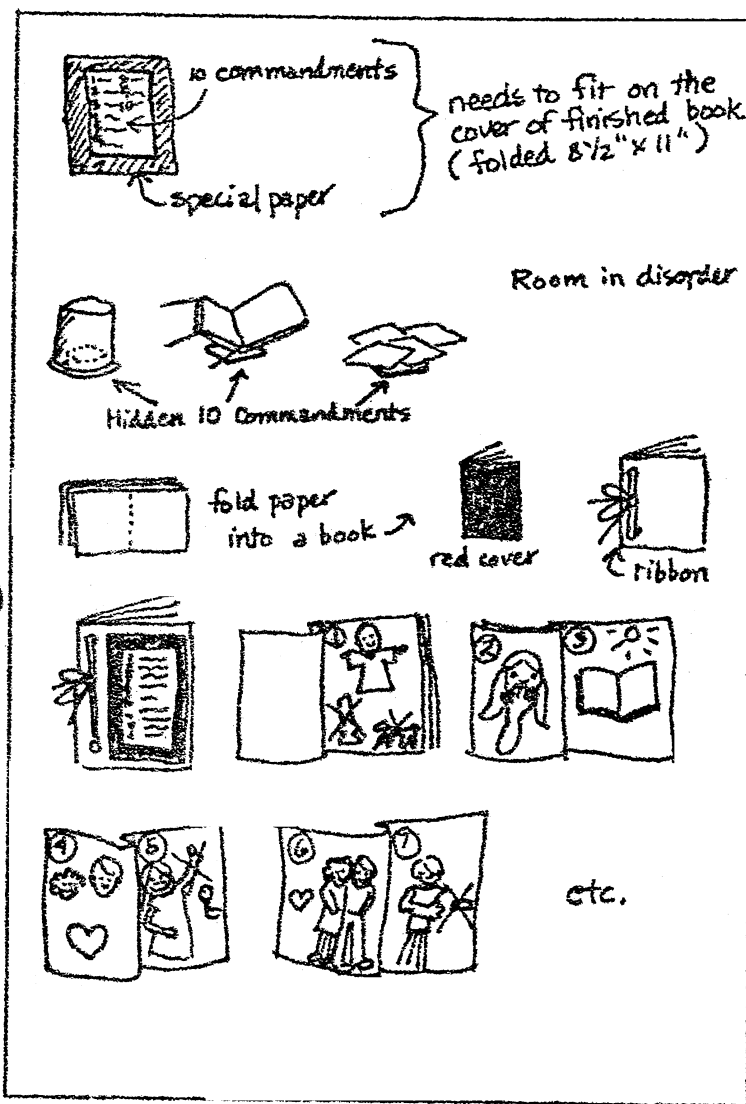 10 commandments
needs to fit on the
cover of finished book
(folded 8½" x 11")
special paper
Room in disorder
Hidden 10 Commandments
fold paper
into a book
red cover
ribbon
1
2
3
4
5
6
7
etc.